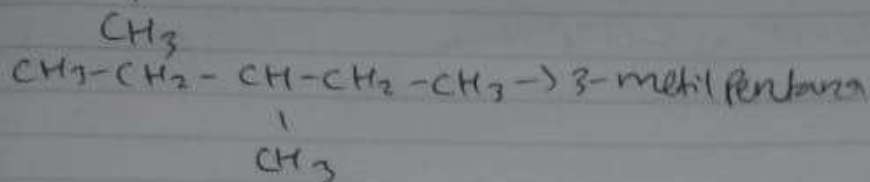 CH3
CH3-CH2-CH-CH2-CH3->3-metil Pentana
|
CH3